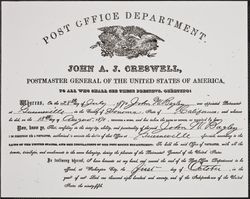 POST OFFICE DEPARTMENT.
JOHN A. J. CRESWELL,
POSTMASTER GENERAL OF THE UNITED STATES OF AMERICA,
TO ALL WHO SHALL SEE THESE PRESENTS, GREETING:
Whereas, On the 28th day of July 1870, John W. Bagley was appointed Postmaster
at Guerneville in the County of Sonoma State of California
did on the day of August, 1870,
Now, know ye, That confiding in the integrity, ability, and punctuality of the said John W. Bagley
I DO COMMISSION HIM a Postmaster, authorized to execute the duties of that Office at Guerneville
LAWS OF THE UNITED STATES AND THE REGULATIONS OF THE POST OFFICE DEPARTMENT: To hold the said Office of Postmaster, with all the
powers, privileges, and emoluments to the same belonging, during the pleasure of the Postmaster General of the United States.
In testimony whereof, I have hereunto set my hand, and caused the seal of the Post Office Department to be
affixed, at Washington City, the first day of October in the
year of our Lord one thousand eight hundred and seventy, and of the Independence of the United
States the ninety-fifth.